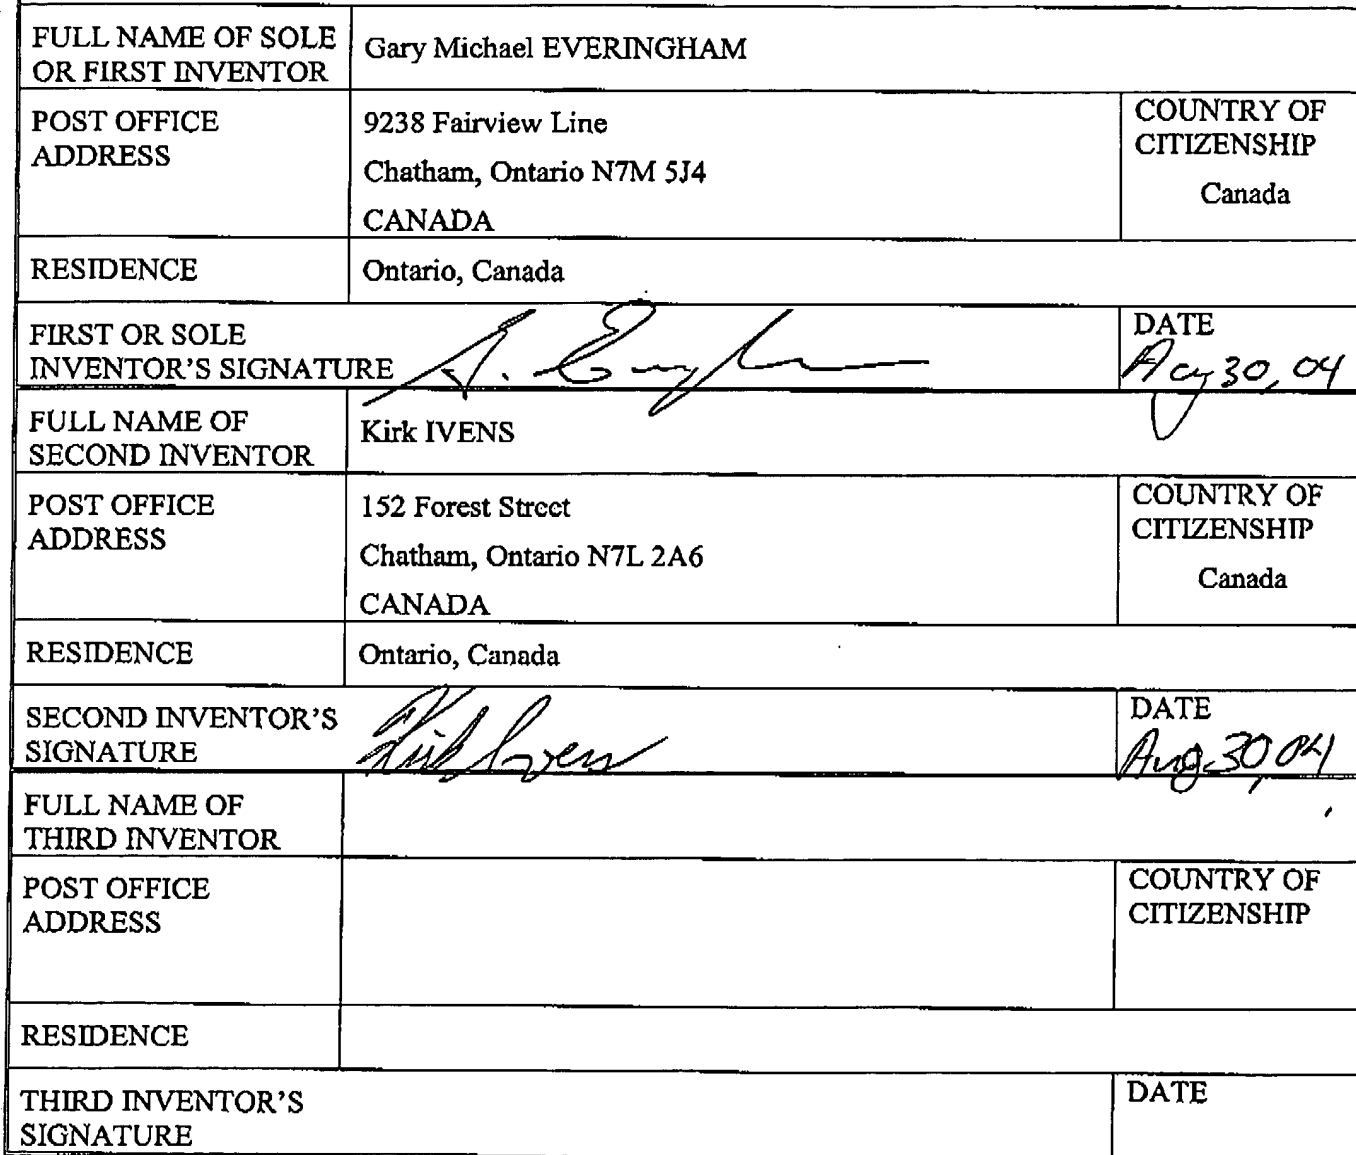 FULL NAME OF SOLE
OR FIRST INVENTOR
Gary Michael EVERINGHAM
POST OFFICE
ADDRESS
9238 Fairview Line
Chatham, Ontario N7M 5J4
CANADA
COUNTRY OF
CITIZENSHIP
Canada
RESIDENCE
Ontario, Canada
FIRST OR SOLE
INVENTOR'S SIGNATURE
DATE
Aug 30, 04
FULL NAME OF
SECOND INVENTOR
Kirk IVENS
POST OFFICE
ADDRESS
152 Forest Street
Chatham, Ontario N7L 2A6
CANADA
COUNTRY OF
CITIZENSHIP
Canada
RESIDENCE
Ontario, Canada
SECOND INVENTOR'S
SIGNATURE
Kirk Ivens
DATE
Aug 30, 04
FULL NAME OF
THIRD INVENTOR
POST OFFICE
ADDRESS
COUNTRY OF
CITIZENSHIP
RESIDENCE
THIRD INVENTOR'S
SIGNATURE
DATE